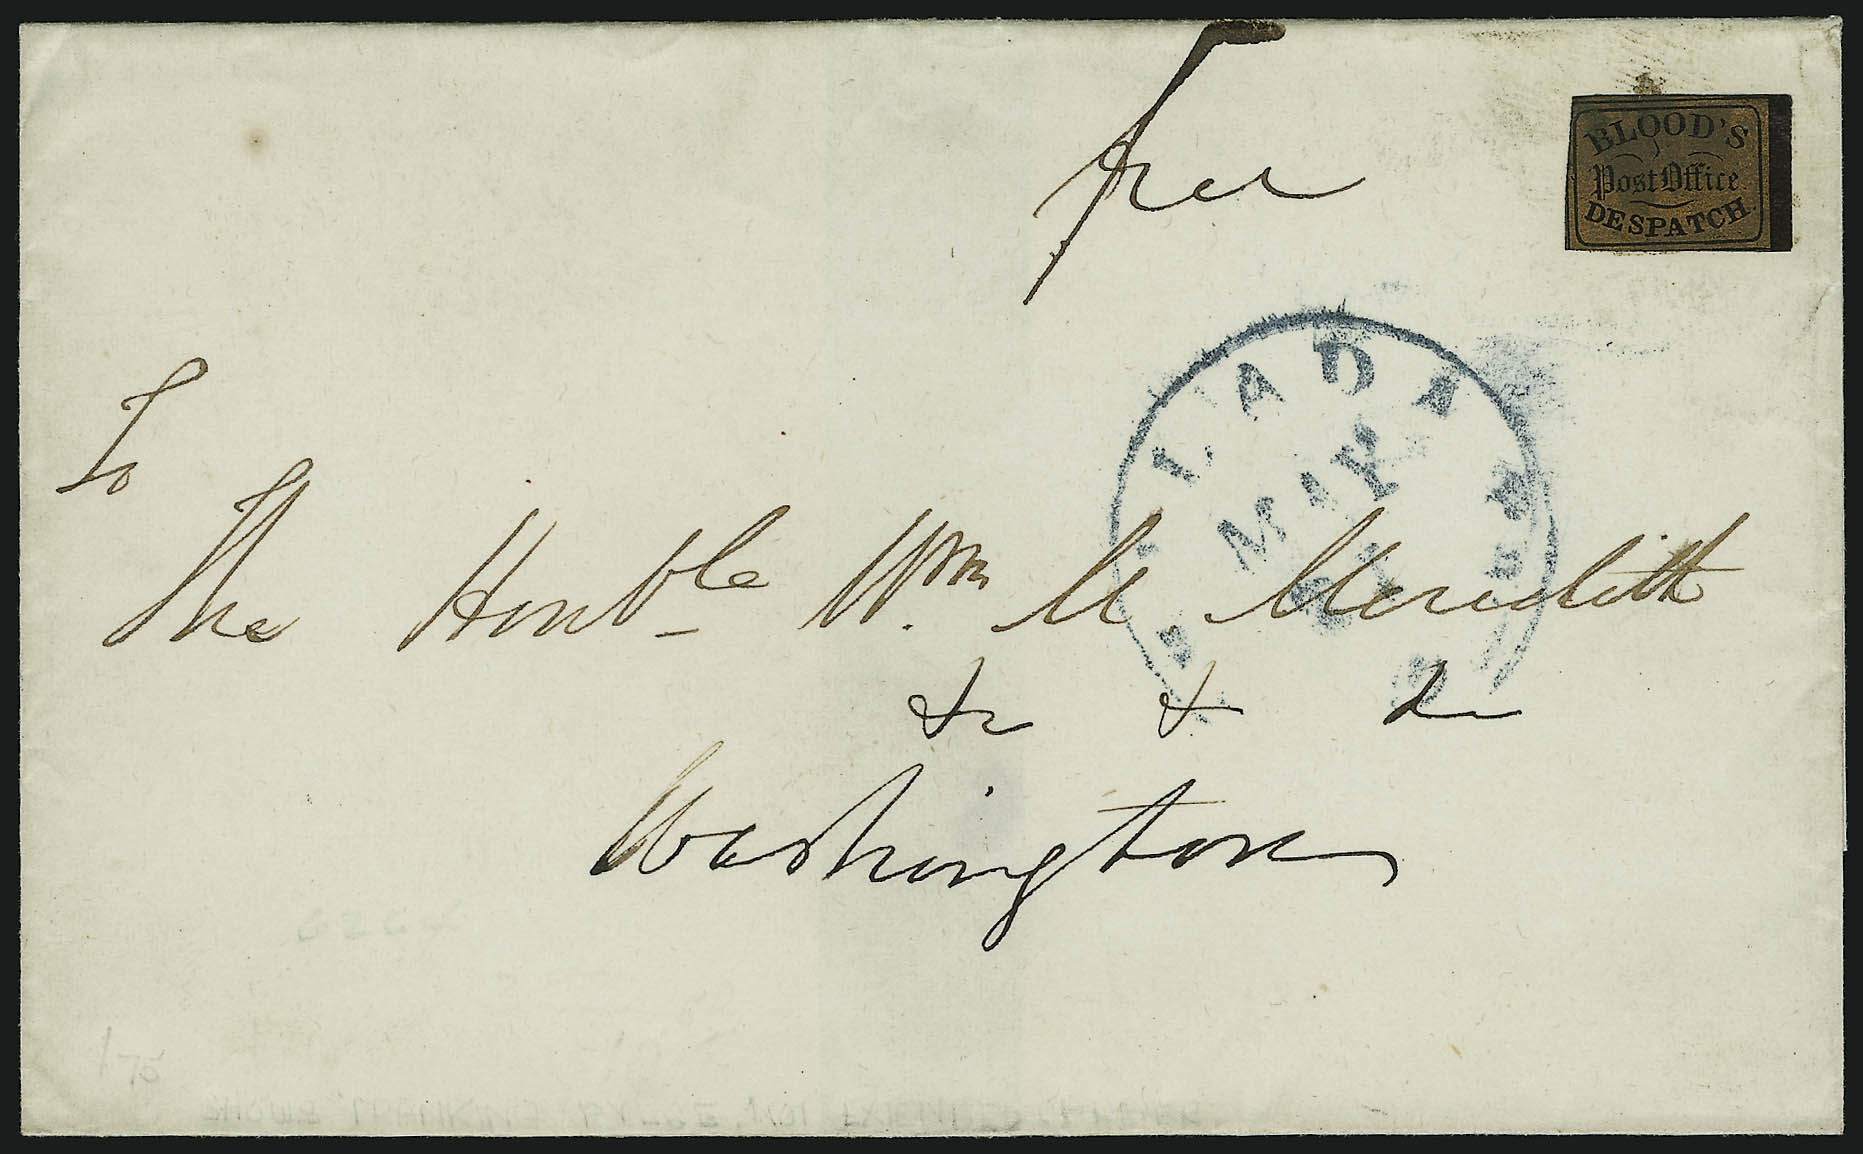 free
BLOOD'S
Post Office
DESPATCH
LADA
MAY
To
The Honble Wm M Meredith
&c & &c
Washington